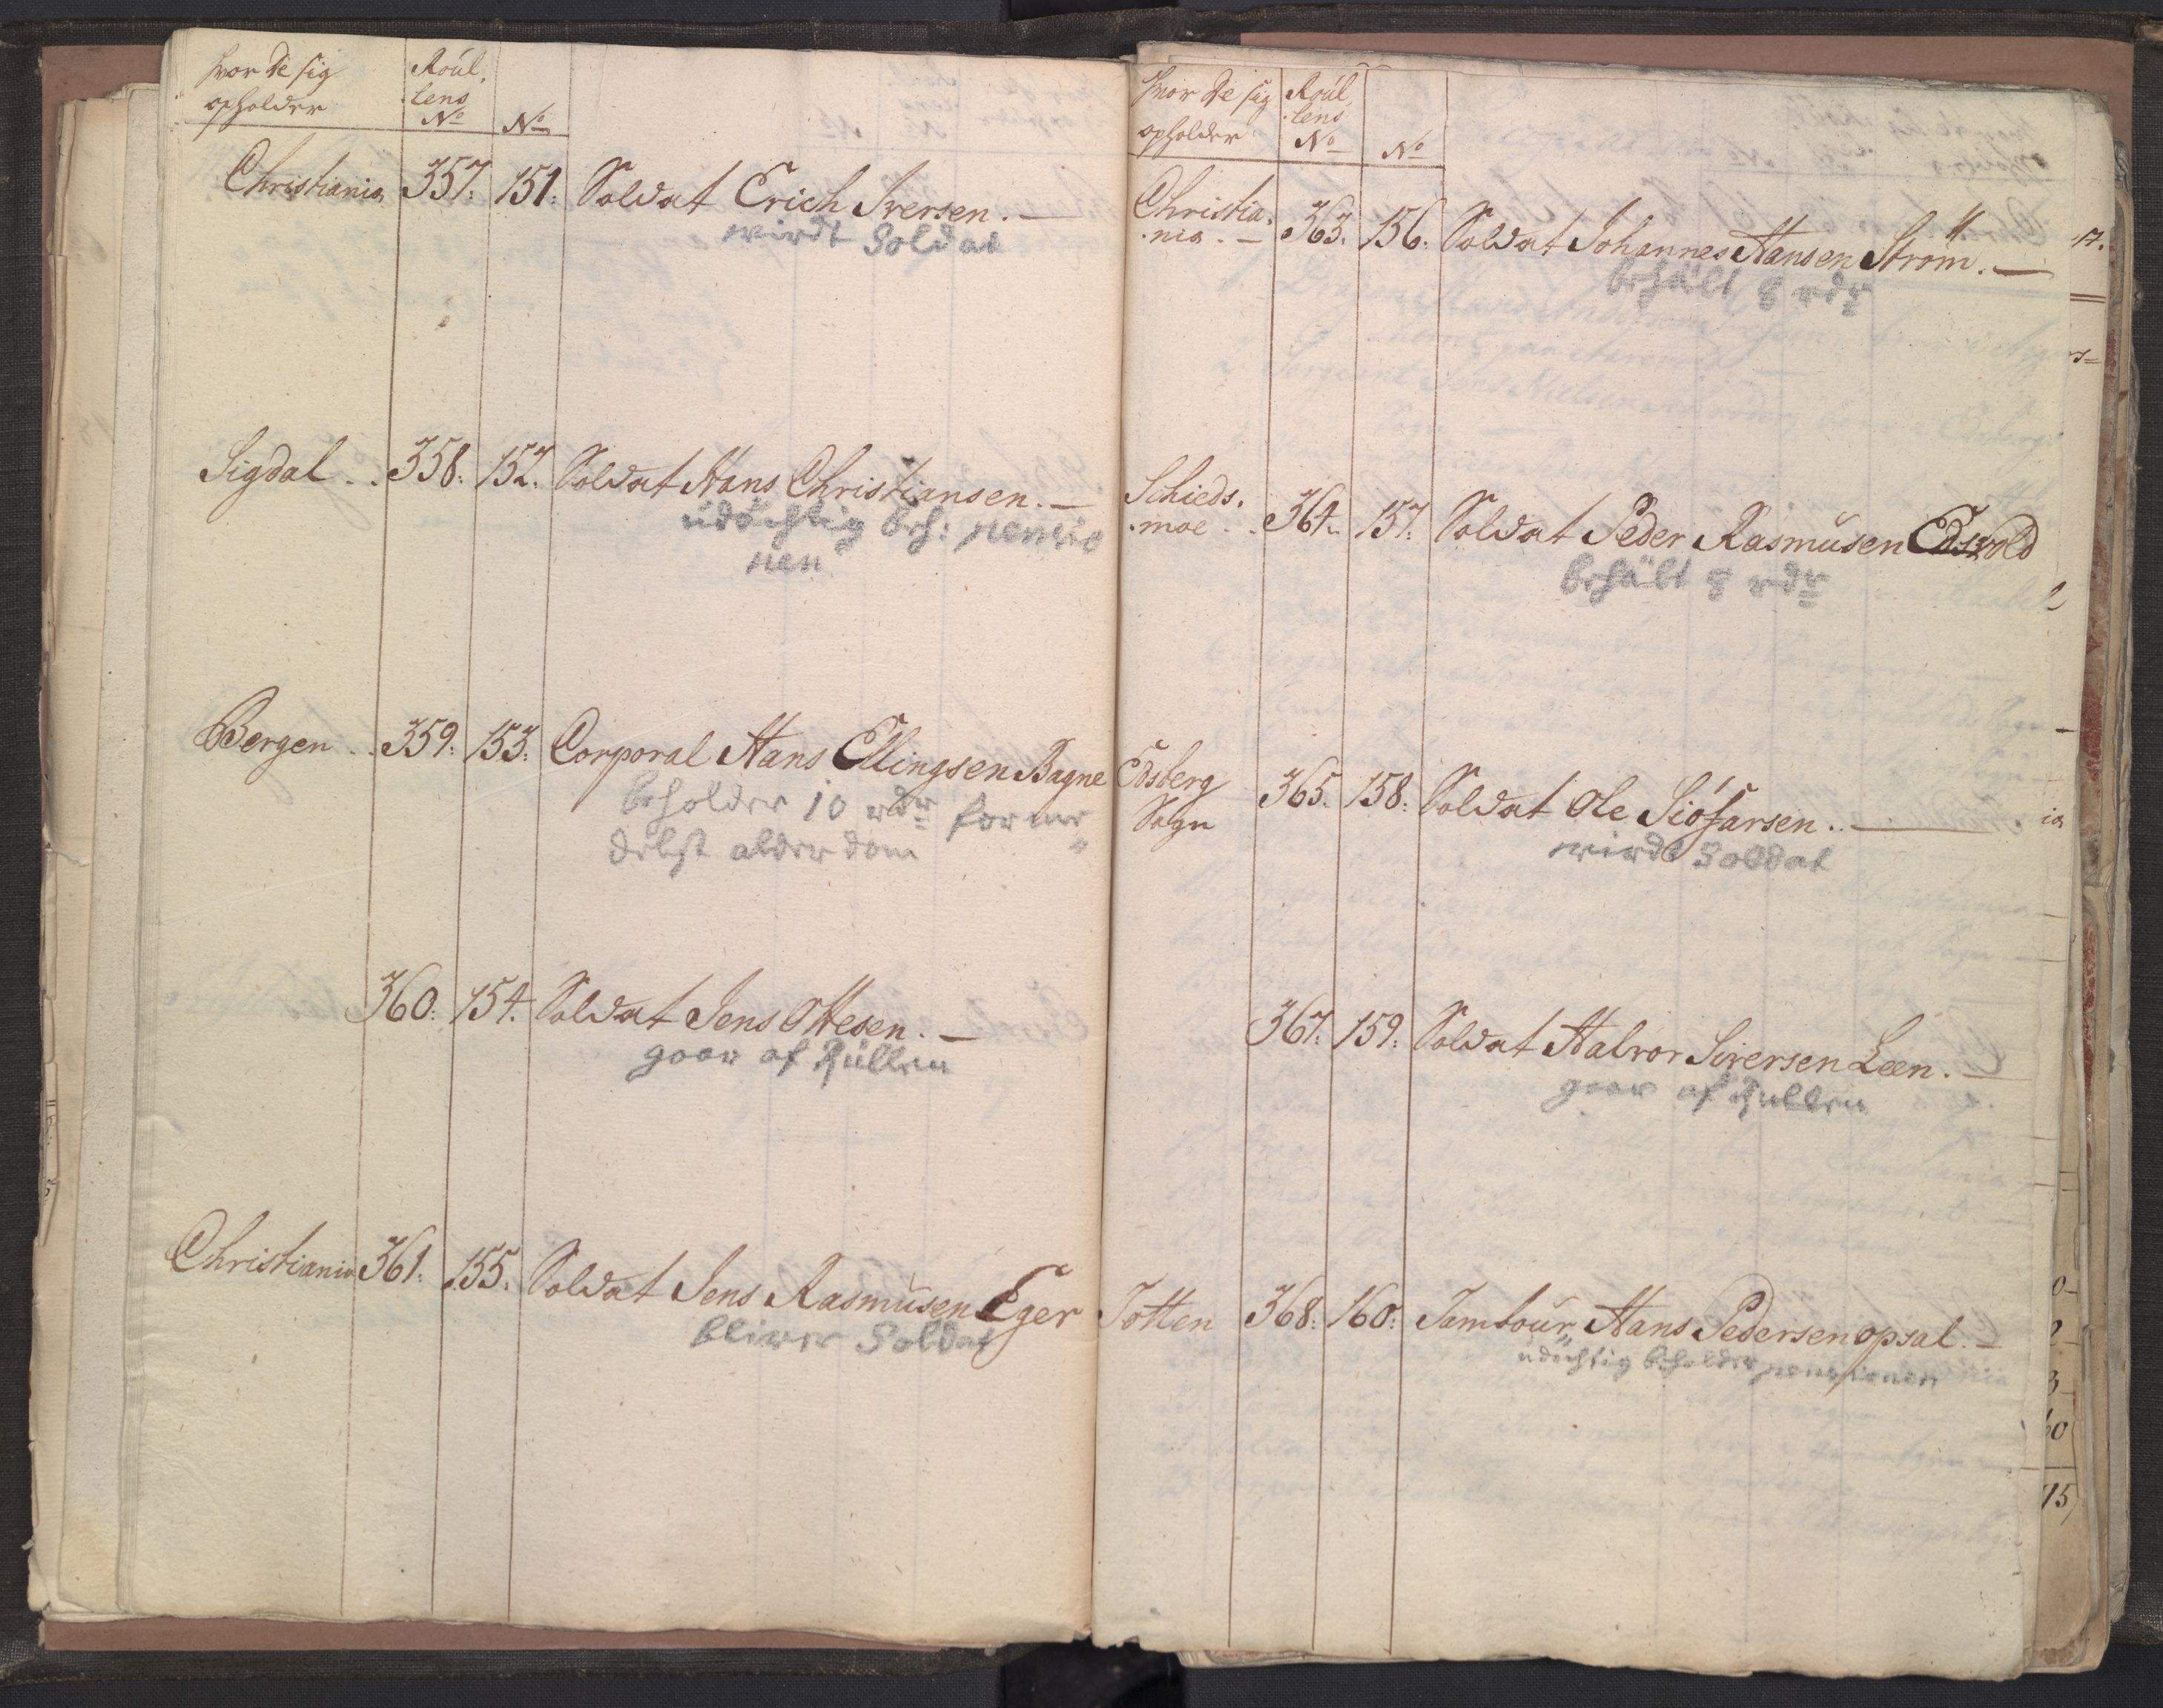 hvor de sig opholder Roul, .lens No No
Christiania 357: 151: Soldat Erich Iversen. —
wirdt Soldat
Sigdal . . 358: 152. Soldat Hans Christiansen. —
udüchtig beh: pensio
nen
Bergen . . 359: 153: Corporal Hans Ellingsen Bagne
beholder 10 rdr formedelst alderdom
360: 154. Soldat Jens Ottesen. —
gaar af Rullen
Christiania 361: 155. Soldat Jens Rasmusen Eger
bliver Soldat
Hvor de sig opholder Roul, .lens No No
Christia, .nia . — 363. 156: Soldat Johannes Hansen Strøm. —
behält 8 rdr
Schieds, .moe . . 364. 157. Soldat Peder Rasmusen Edsvold
behält 8 rdr
Edsberg Sogn 365. 158: Soldat Ole Siöfarsen. —
wirdt Soldat
367. 159: Soldat Halvor Siversen Leen. —
gaar af Rullen
Totten 368: 160: Tambour Hans Pedersen opsal. —
udüchtig beholder pensionen